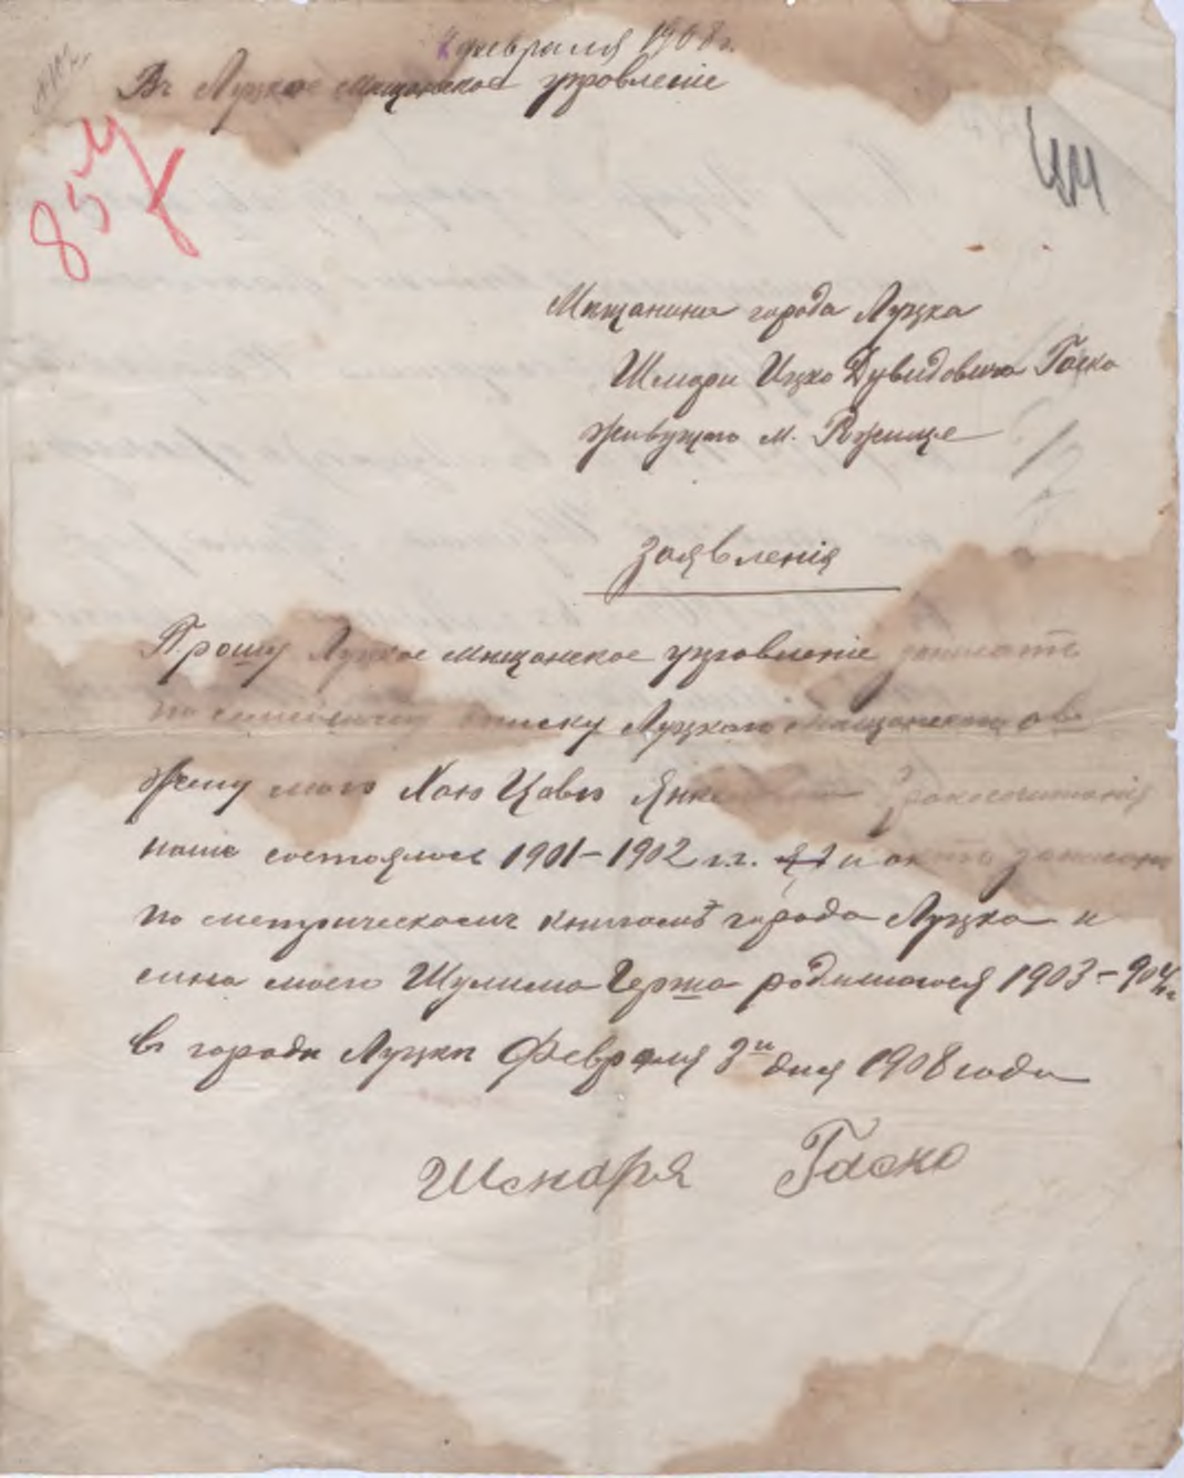 4 февраля 1908 г.
Въ Луцкое Мищанское управленіе
857
44
Мищанина города Луцка
Шмари Ицко Дувидовича Гаско
живущаго м. Рожище
Заявленія
Прошу Луцкое мищанское управленіе записать
по семейному списку Луцкаго мищанского об
жену моею Хаю Цавю бракосочитанія
наше состоялось 1901–1902 г.г. и актъ записан
по метрическимъ книгамъ города Луцка и
сина моего Шулима Герша родившагося 1903–904 г.
въ городи Луцки Февраля 3го дня 1908 года
Шмаря Гаско